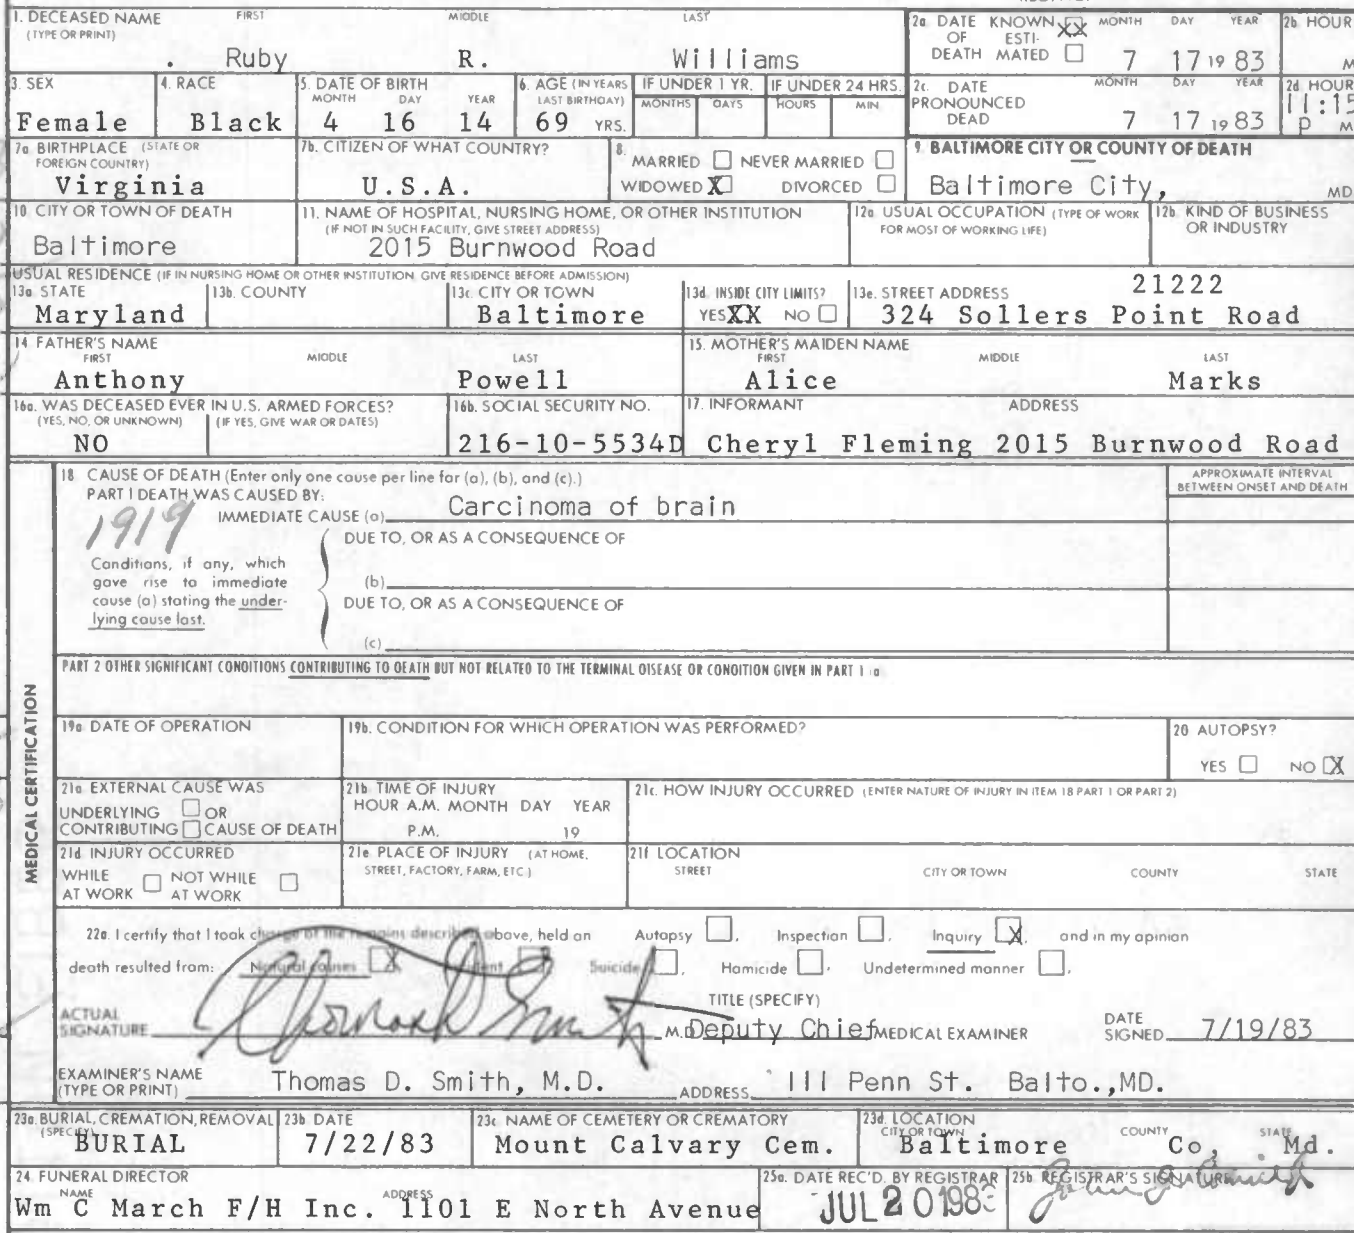 1. DECEASED NAME FIRST MIDDLE LAST
(TYPE OR PRINT)
. Ruby R. Williams
2a DATE OF DEATH KNOWN XX ESTIMATED MONTH DAY YEAR
7 17 19 83
2b HOUR
M
3. SEX
Female
4. RACE
Black
5. DATE OF BIRTH
MONTH DAY YEAR
4 16 14
6. AGE (IN YEARS LAST BIRTHDAY)
69 YRS.
IF UNDER 1 YR.
MONTHS DAYS
IF UNDER 24 HRS.
HOURS MIN
2c. DATE PRONOUNCED DEAD MONTH DAY YEAR
7 17 19 83
2d HOUR
11:15
P M
7a BIRTHPLACE (STATE OR FOREIGN COUNTRY)
Virginia
7b. CITIZEN OF WHAT COUNTRY?
U.S.A.
8.
MARRIED NEVER MARRIED
WIDOWED X DIVORCED
9. BALTIMORE CITY OR COUNTY OF DEATH
Baltimore City, MD
10 CITY OR TOWN OF DEATH
Baltimore
11. NAME OF HOSPITAL, NURSING HOME, OR OTHER INSTITUTION
(IF NOT IN SUCH FACILITY, GIVE STREET ADDRESS)
2015 Burnwood Road
12a USUAL OCCUPATION (TYPE OF WORK FOR MOST OF WORKING LIFE)
12b. KIND OF BUSINESS OR INDUSTRY
USUAL RESIDENCE (IF IN NURSING HOME OR OTHER INSTITUTION GIVE RESIDENCE BEFORE ADMISSION)
13a STATE
Maryland
13b. COUNTY
13c CITY OR TOWN
Baltimore
13d. INSIDE CITY LIMITS?
YES XX NO
13e. STREET ADDRESS 21222
324 Sollers Point Road
14 FATHER'S NAME
FIRST MIDDLE LAST
Anthony Powell
15. MOTHER'S MAIDEN NAME
FIRST MIDDLE LAST
Alice Marks
16a. WAS DECEASED EVER IN U.S. ARMED FORCES?
(YES, NO, OR UNKNOWN) (IF YES, GIVE WAR OR DATES)
NO
16b. SOCIAL SECURITY NO.
216-10-5534D
17. INFORMANT ADDRESS
Cheryl Fleming 2015 Burnwood Road
MEDICAL CERTIFICATION
18 CAUSE OF DEATH (Enter only one cause per line for (a), (b), and (c).)
PART I DEATH WAS CAUSED BY:
APPROXIMATE INTERVAL BETWEEN ONSET AND DEATH
1919
IMMEDIATE CAUSE (a) Carcinoma of brain
DUE TO, OR AS A CONSEQUENCE OF
Conditions, if any, which
gave rise to immediate
cause (a) stating the under-
lying cause last.
(b)
DUE TO, OR AS A CONSEQUENCE OF
(c)
PART 2 OTHER SIGNIFICANT CONDITIONS CONTRIBUTING TO DEATH BUT NOT RELATED TO THE TERMINAL DISEASE OR CONDITION GIVEN IN PART 1 (a)
19a DATE OF OPERATION
19b. CONDITION FOR WHICH OPERATION WAS PERFORMED?
20 AUTOPSY?
YES NO X
21a EXTERNAL CAUSE WAS
UNDERLYING OR
CONTRIBUTING CAUSE OF DEATH
21b TIME OF INJURY
HOUR A.M. MONTH DAY YEAR
P.M. 19
21c. HOW INJURY OCCURRED (ENTER NATURE OF INJURY IN ITEM 18 PART 1 OR PART 2)
21d INJURY OCCURRED
WHILE AT WORK NOT WHILE AT WORK
21e PLACE OF INJURY (AT HOME, STREET, FACTORY, FARM, ETC.)
21f LOCATION
STREET CITY OR TOWN COUNTY STATE
22a. I certify that I took charge of the remains described above, held an Autopsy, Inspection, Inquiry X, and in my opinion
death resulted from: Natural causes X, Accident, Suicide, Homicide, Undetermined manner,
ACTUAL SIGNATURE Thomas D Smith M.D.
TITLE (SPECIFY)
Deputy Chief MEDICAL EXAMINER
DATE SIGNED 7/19/83
EXAMINER'S NAME (TYPE OR PRINT) Thomas D. Smith, M.D.
ADDRESS 111 Penn St. Balto.,MD.
23a. BURIAL, CREMATION, REMOVAL (SPECIFY)
BURIAL
23b DATE
7/22/83
23c NAME OF CEMETERY OR CREMATORY
Mount Calvary Cem.
23d. LOCATION
CITY OR TOWN COUNTY STATE
Baltimore Co, Md.
24 FUNERAL DIRECTOR
NAME ADDRESS
Wm C March F/H Inc. 1101 E North Avenue
25a. DATE REC'D. BY REGISTRAR
JUL 20 1983
25b REGISTRAR'S SIGNATURE